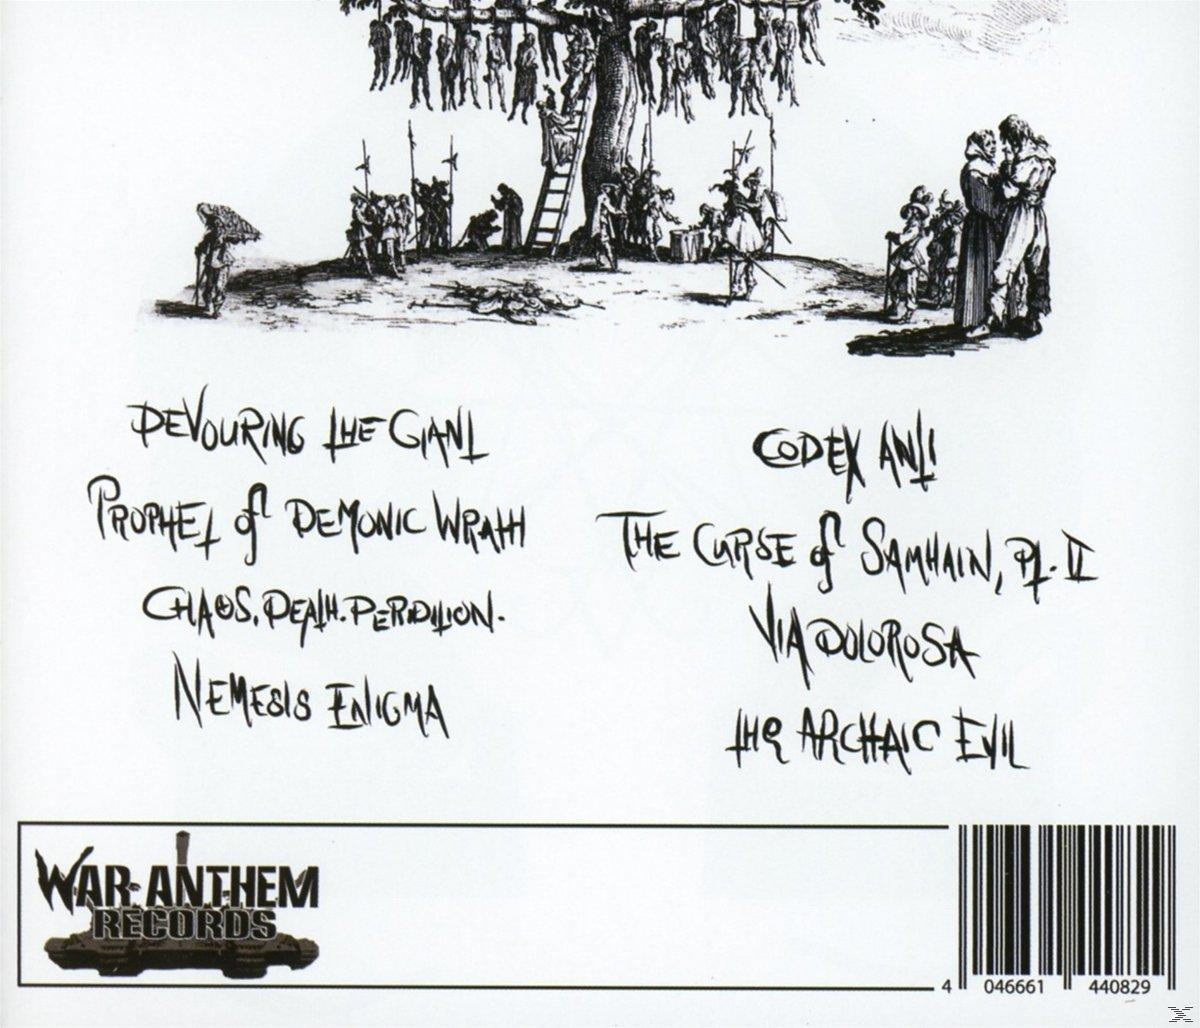 DEVOURING THE GIANT
PROPHET of DEMONIC WRATH
CHAOS. DEATH. PERDITION.
NEMESIS ENIGMA
CODEX ANTI
THE CURSE of SAMHAIN, PT. II
VIA DOLOROSA
THE ARCHAIC EVIL
WAR-ANTHEM
RECORDS
4 046661 440829